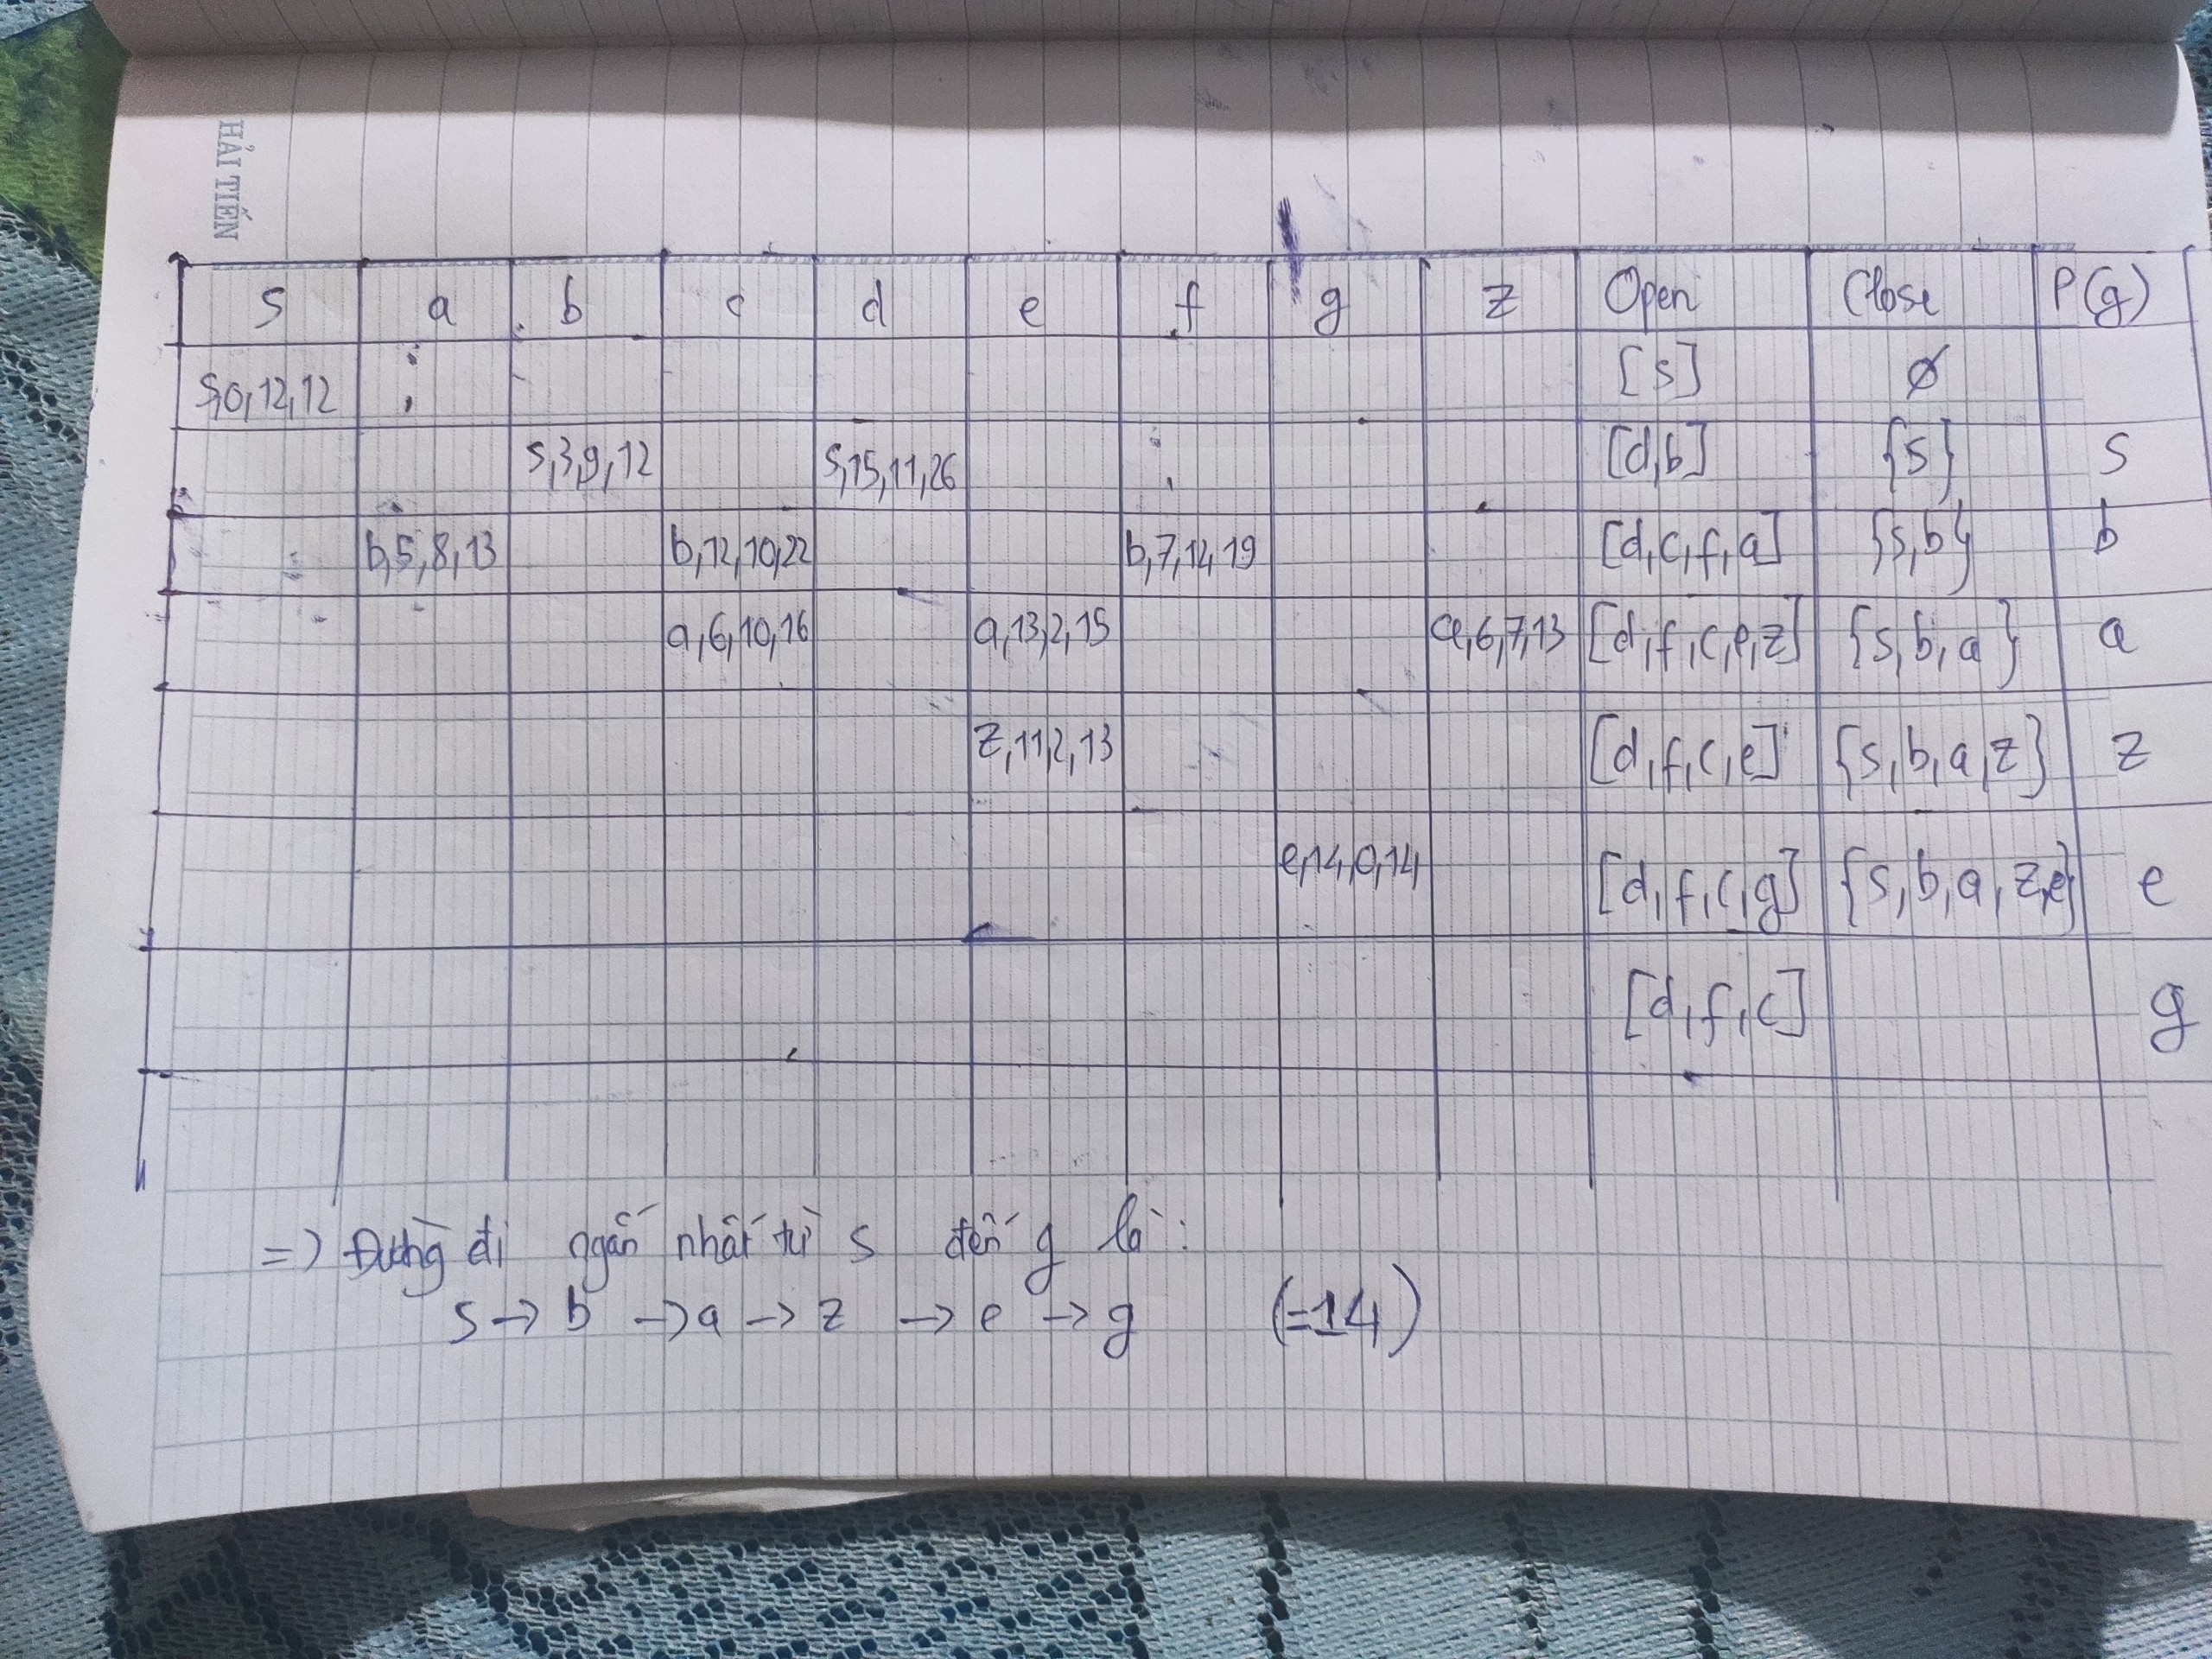 HẢI TIẾN
s a b c d e f g z Open Close P(g)
s,0,12,12 [s] ∅
s,3,9,12 s,15,11,26 [d,b] {s} s
b,5,8,13 b,12,10,22 b,7,12,19 [d,c,f,a] {s,b} b
a,6,10,16 a,13,2,15 a,6,7,13 [d,f,c,e,z] {s,b,a} a
z,11,2,13 [d,f,c,e] {s,b,a,z} z
e,14,0,14 [d,f,c,g] {s,b,a,z,e} e
[d,f,c] g
=) Đường đi ngắn nhất từ s đến g là:
s → b → a → z → e → g (=14)